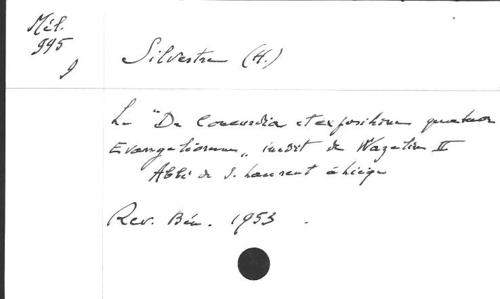 Mél.
995
9
Silvestre (H.)
Le "De Concordia et expositione quatuor
Evangeliorum„ inédit de Wazelin II
Abbé de S. Laurent à Liège
Rev. Bén. 1953.